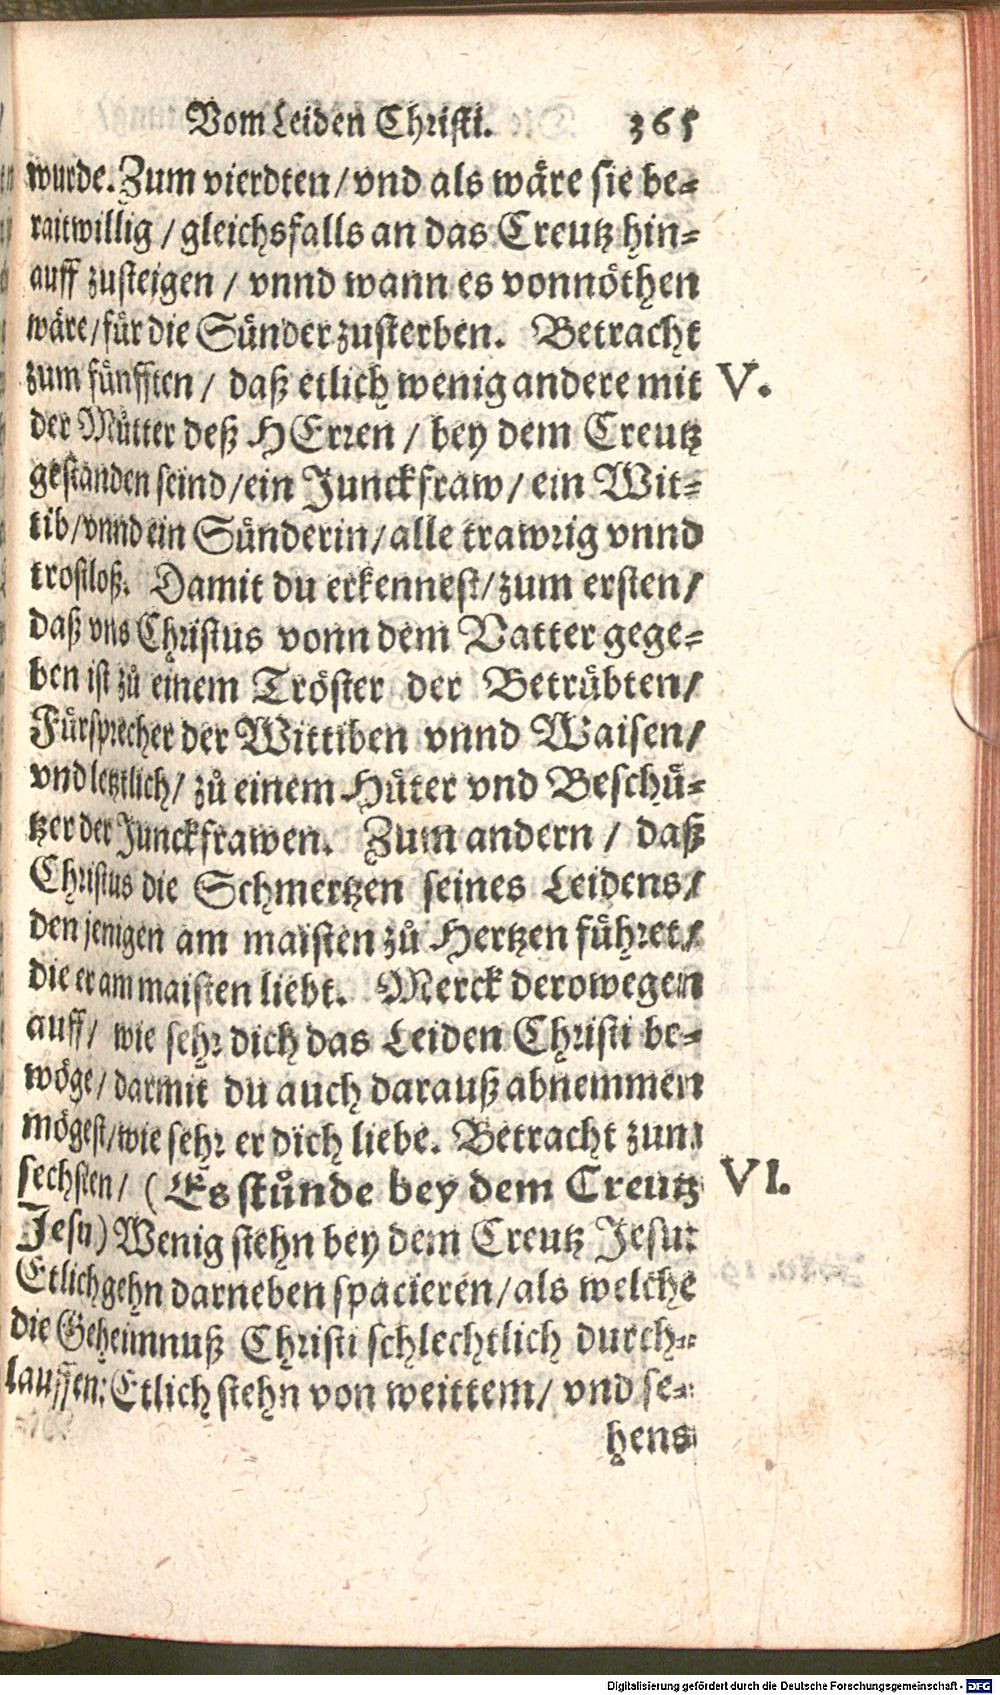 Vom Leiden Christi. 365
wurde. Zum vierdten / vnd als wäre sie be-
raitwillig / gleichsfalls an das Creutz hin-
auff zusteigen / vnnd wann es vonnöthen
wäre / für die Sünder zusterben. Betracht
zum fünfften / daß etlich wenig andere mit V.
der Mütter deß HErren / bey dem Creutz
gestanden seind / ein Junckfraw / ein Wit-
tib / vnnd ein Sünderin / alle trawrig vnnd
trostloß. Damit du erkennest / zum ersten /
daß vns Christus vonn dem Vatter gege-
ben ist zů einem Tröster der Betrübten /
Fürsprecher der Wittiben vnnd Waisen /
vnd letztlich / zů einem Hüter vnd Beschü-
tzer der Junckfrawen. Zum andern / daß
Christus die Schmertzen seines Leidens /
den jenigen am maisten zů Hertzen führet /
die er am maisten liebt. Merck derowegen
auff / wie sehr dich das Leiden Christi be-
wöge / darmit du auch darauß abnemmen
mögest / wie sehr er dich liebe. Betracht zum
sechsten / (Es stůnde bey dem Creutz VI.
Jesu) Wenig stehn bey dem Creutz Jesu:
Etlich gehn darneben spacieren / als welche
die Geheimnuß Christi schlechtlich durch-
lauffen: Etlich stehn von weittem / vnd se-
hens
Digitalisierung gefördert durch die Deutsche Forschungsgemeinschaft - DFG